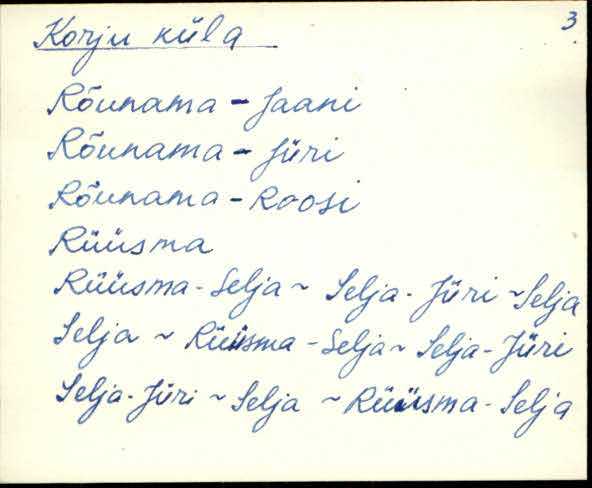 3
Korju küla
Rõunama - Jaani
Rõunama - Jüri
Rõunama - Roosi
Rüüsma
Rüüsma - Selja ~ Selja - Jüri ~ Selja
Selja ~ Rüüsma - Selja ~ Selja - Jüri
Selja - Jüri ~ Selja ~ Rüüsma - Selja